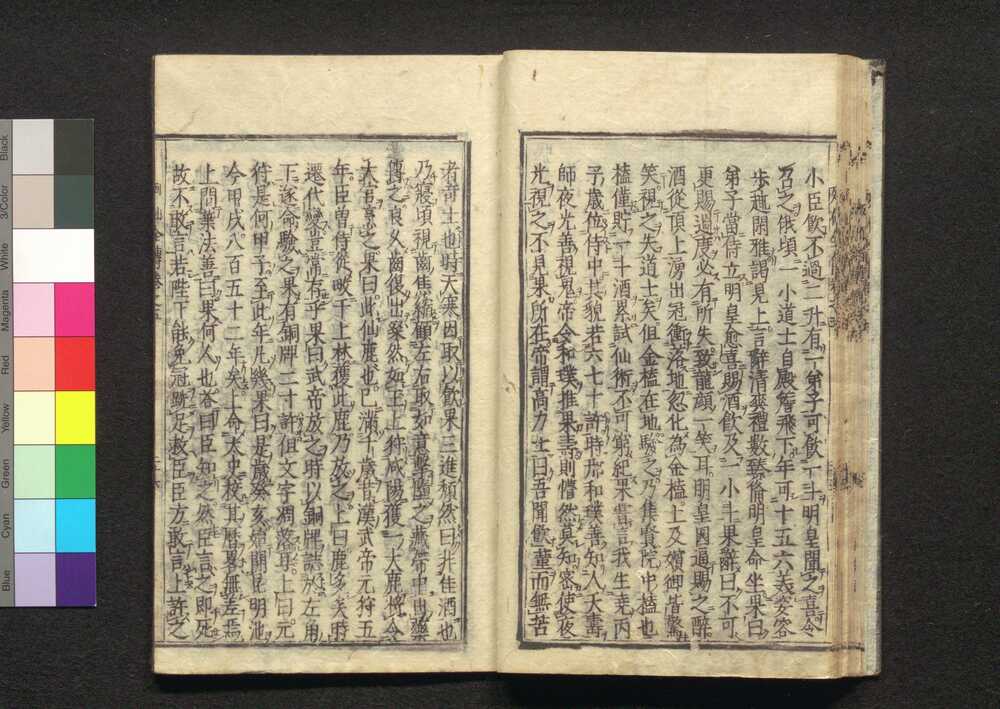 小臣飲不過二升有一弟子可飲一斗明皇聞之喜令
召之俄頃一小道士自殿簷飛下年可十五六美姿容
步趨閑雅謁見上言辭清爽禮數臻備明皇命坐果曰
弟子當侍立明皇愈喜賜酒飲及一小斗果辭曰不可
更賜過度必有所失致龍顔一笑耳明皇因逼賜之醉
酒從頂上湧出冠衝落地忽化為金榼上及嬪御皆驚
笑視之失道士矣但金榼在地驗之乃集賢院中榼也
榼僅貯一斗酒累試仙術不可第紀果嘗言我生堯丙
子歲位侍中其貌若六七十許時邢和璞善知人夭壽
師夜光善視鬼帝令和璞推果壽則懵然莫知密使夜
光視之不見果所在帝謂高力士曰吾聞飲菫而無苦
者奇士也時天寒因取以飲果三進頹然曰非佳酒也
乃寢頃視齒焦縮顧左右取如意擊墮之藏帶中出藥
傅之良久齒復出粲然如玉上狩咸陽獲一大鹿將令
大官烹之果曰此仙鹿也已滿千歲昔漢武帝元狩五
年臣曾侍從畋于上林獲此鹿乃放之上曰鹿多矣時
遷代變豈常存乎果曰武帝放之時以銅牌誌於左角
下遂命驗之果有銅牌二寸許但文字凋落耳上曰元
狩是何甲子至此年凡幾果曰是歲癸亥始開昆明池
今甲戌八百五十二年矣上命太史校其曆畧無差焉
上問葉法善曰果何人也答曰臣知之然臣言之即死
故不敢言若陛下能免冠跣足救臣臣方敢言上許之